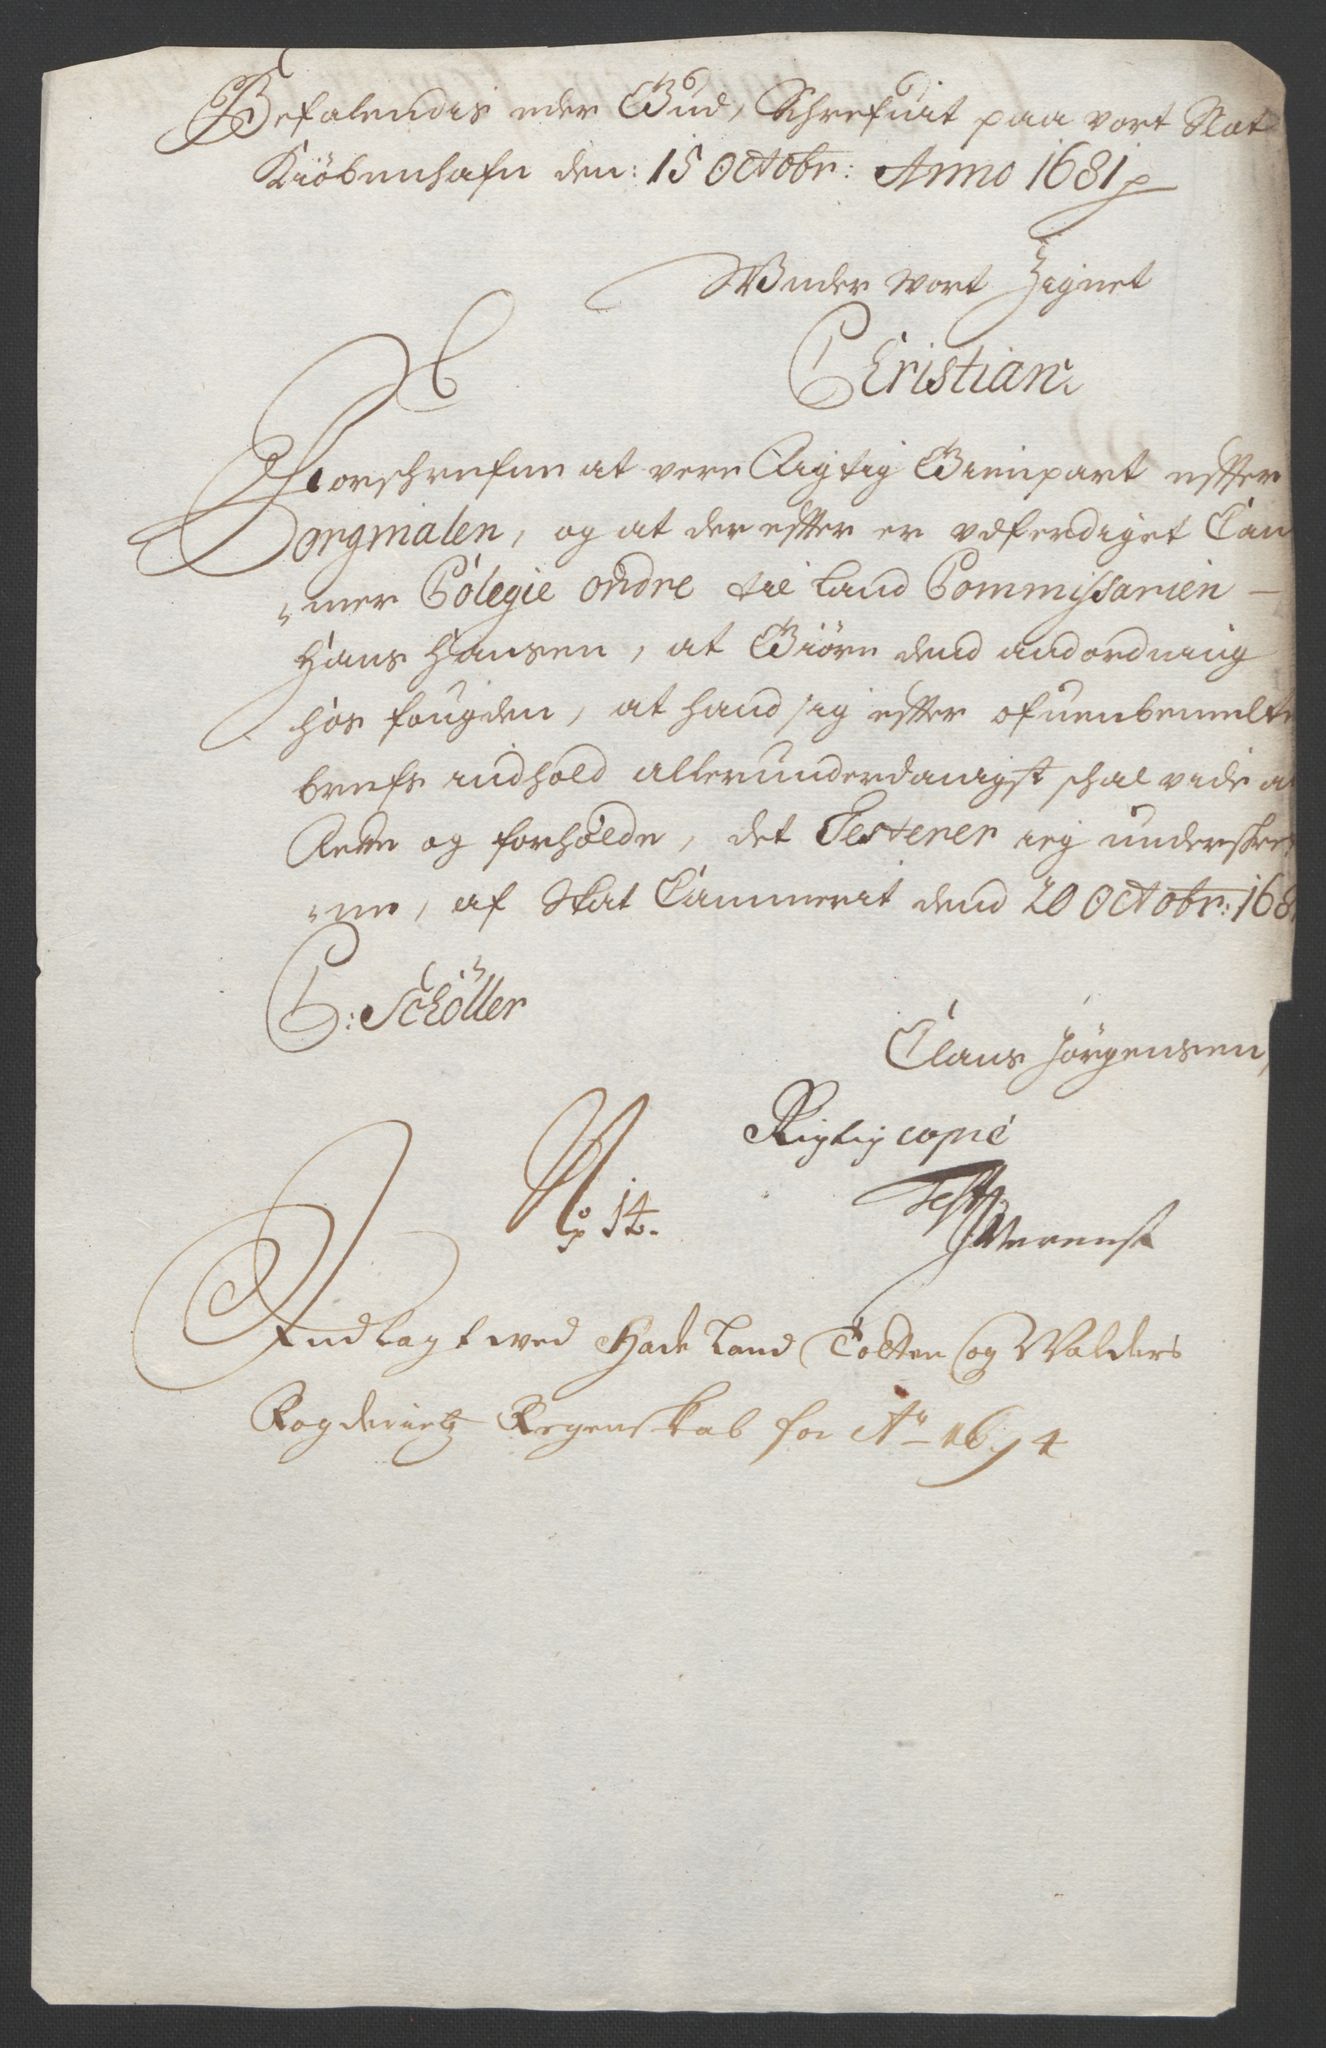 Befalendis eder Gud, Schrefuit paa vort Slot
Kiöbenhafn den: 15 Octobr: Anno 1681 p
Wnder wort Zignet
Christian
Forschrefne at vere Rigtig Gienpart effter
Orgmialen, og at der effter er vdferdiget Cam
mer Colegie Ordre til Land Commissarien
Hans Hansen, at Giöre dend andordning
hos fougden, at hand sig effter ofuenbemelte
brefs indhold allerunderdanigst schal vide at
Rette og forholde, det Testerer ieg underskref
ne, af Skat Cammerit dend 20 Octobr: 168
C: Schöller
Claus Jörgensen,
Rigtig copie
Test
No 14.
Indlagt wed Hadeland Totten og Walders
Fogderietz Regenskab for Ao 1694